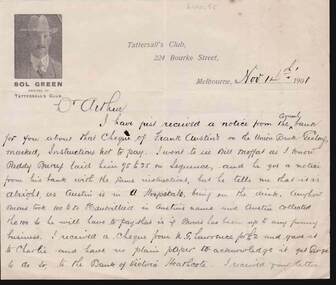 Tattersall's Club,
224 Bourke Street,
Melbourne, Nov 14th 1901
SOL GREEN
TATTERSALL'S CLUB
Dr Arthur
I have just received a notice from the Comml bank
for you about that Cheque of Frank Austin's on the Union Bank Geelong
marked, Instructions not to pay. I went to see Bill Moffat as I know
Paddy Burns laid him 95 to 35 on Sequence, and he got a notice
from his bank with the same instructions, but he tells me that is as
alright, as Austin is in a Hospital, being on the drink. Anyhow
in Austins name and Austin collected
there so he will have to pay that is if Burns has been up to any funny
business. I received a cheque from H. G. Lawrence for and gave it
to Charlie and have no plain paper to acknowledge it
to do so to the Bank of Victoria Heathcote. I received your letter